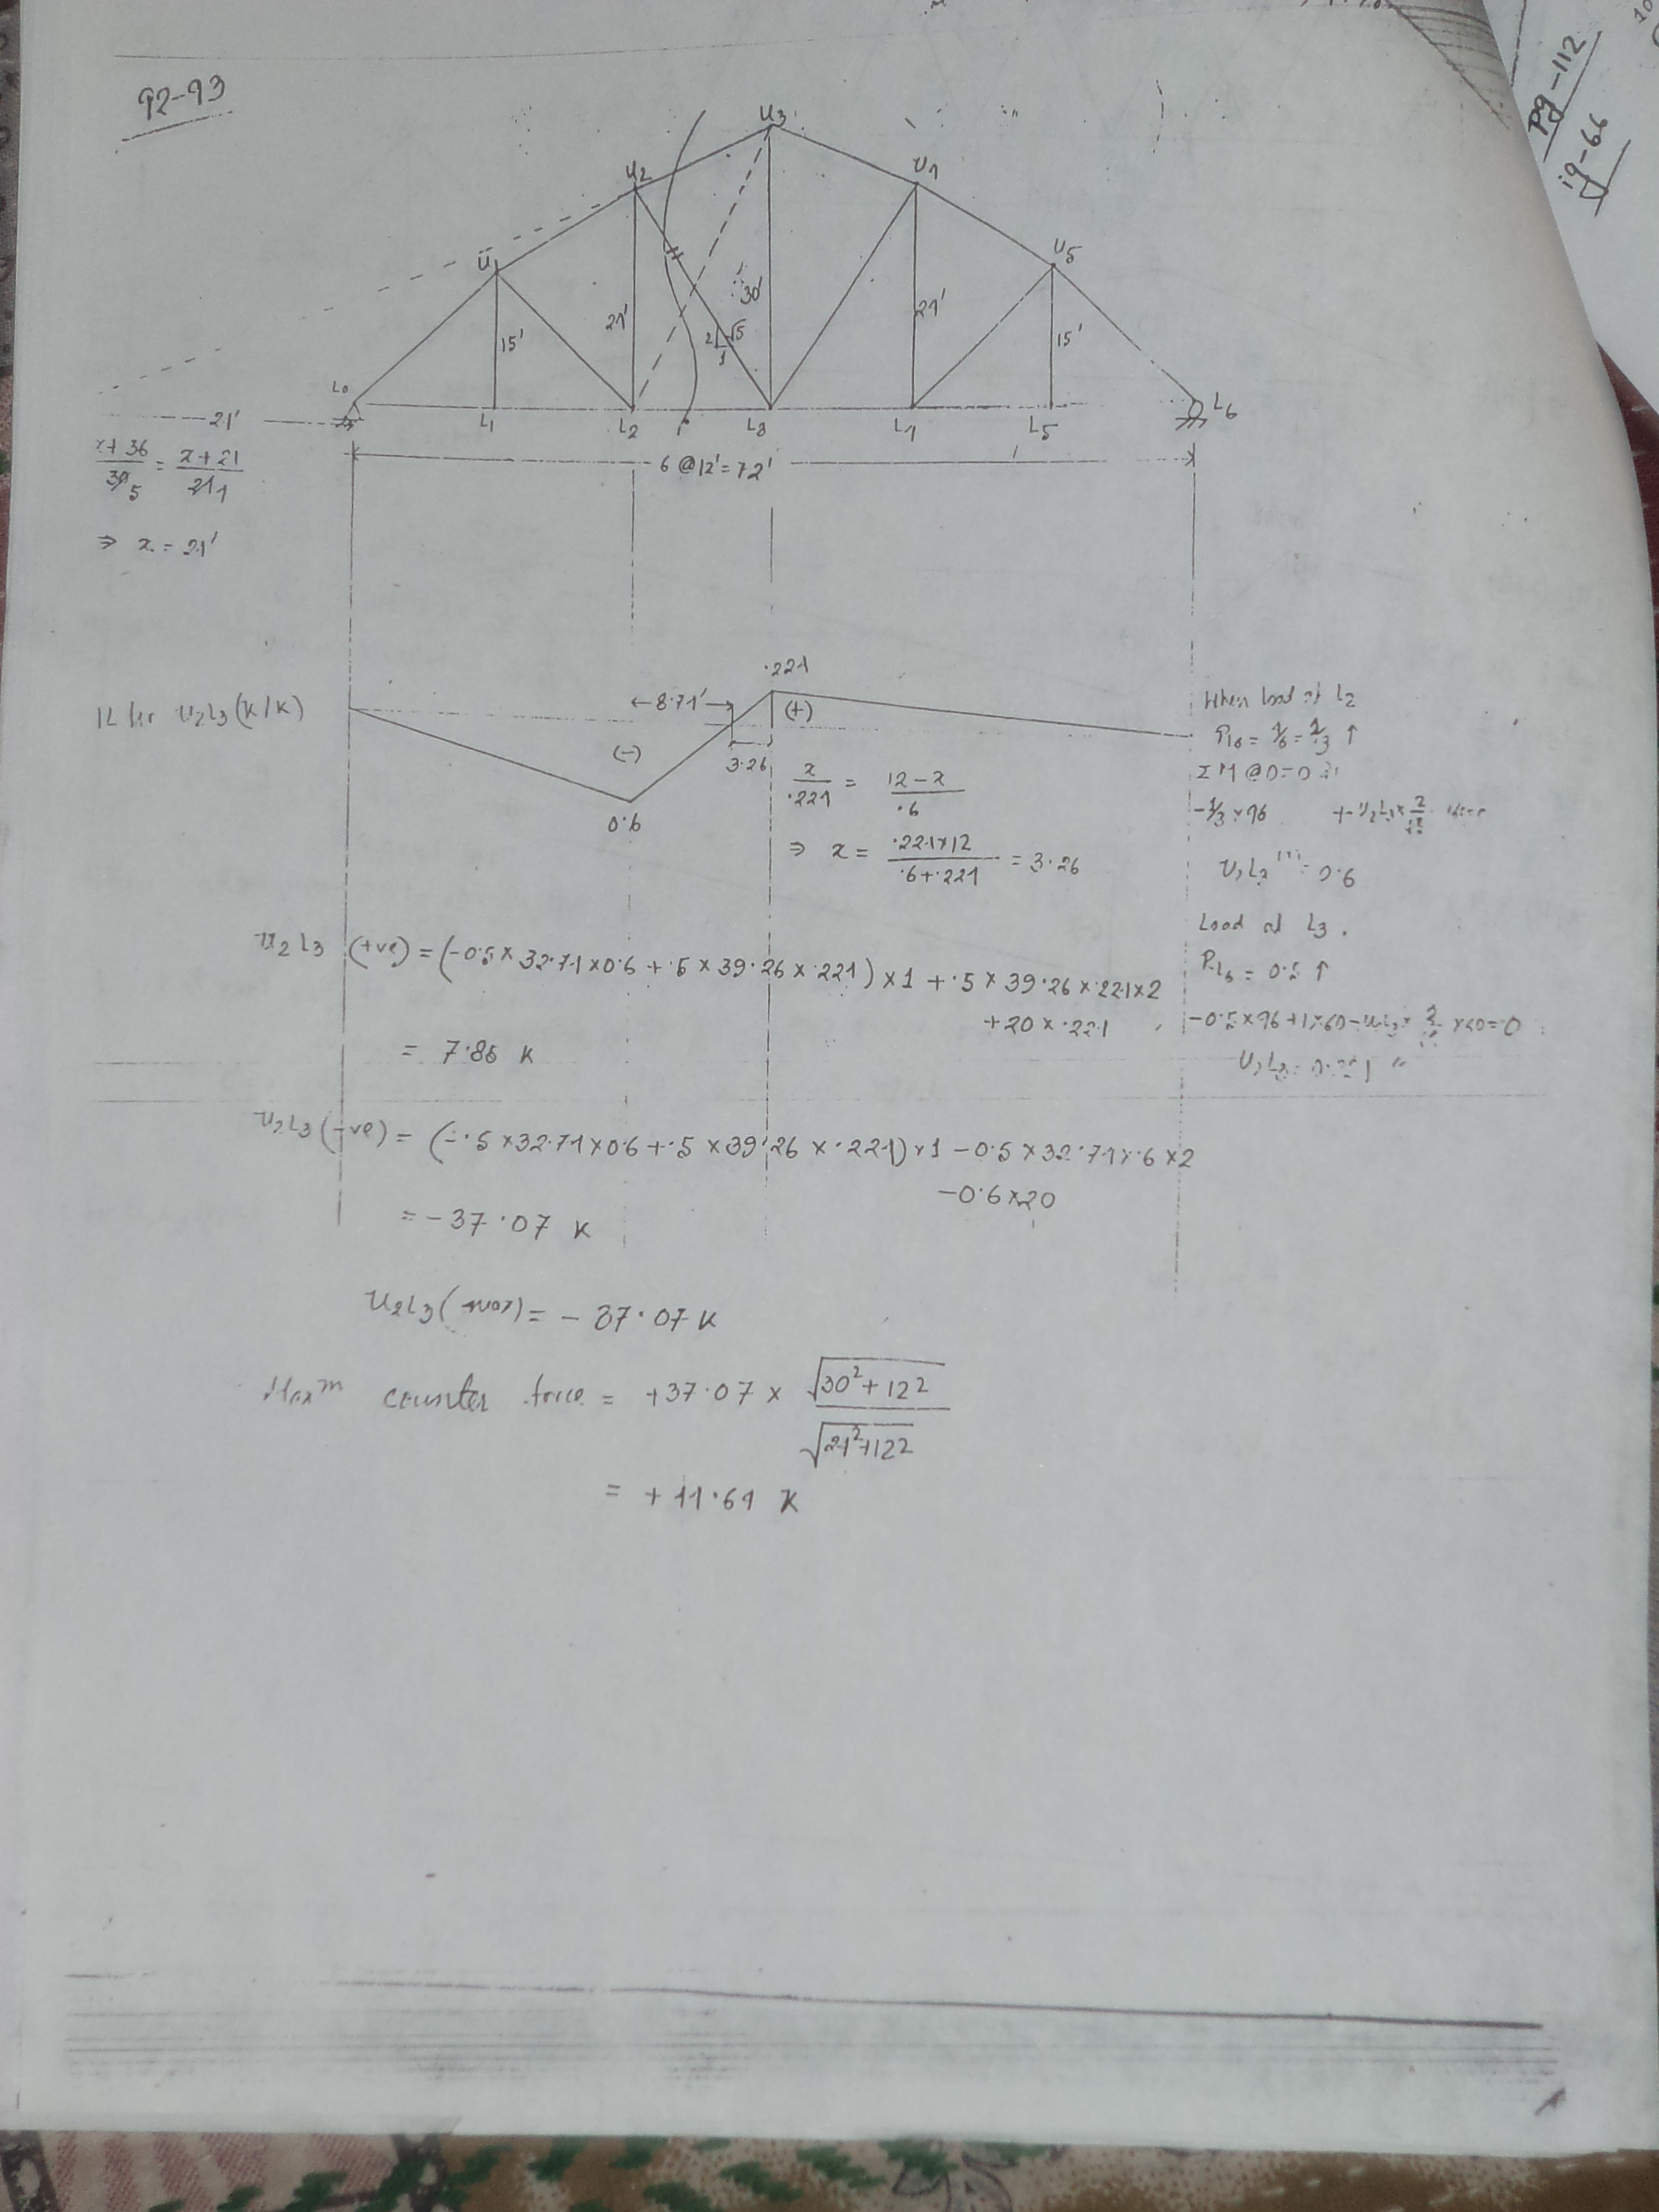 92-93
Pg-112
ig-66
U3
U2
U4
U1
U5
15'
24'
30'
24'
15'
2
√5
1
L0
L1
L2
L3
L4
L5
L6
24'
6 @12'=72'
x+36/30 5 = x+24/24 4
⇒ x = 24'
IL for U2L3 (K/K)
.224
←8.74'→
(+)
(-)
3.26
0.6
x/.224 = 12-x/.6
⇒ x = .224×12/.6+.224 = 3.26
When load at L2
RL6 = 2/6 = 1/3 ↑
ΣM@O=0
-1/3×96
U2L3 = 0.6
Load at L3.
RL6 = 0.5 ↑
-0.5×96+1×60-U2L3×2/√5×60=0
U2L3 = 0.224
U2L3 (+ve) = (-0.5×32.74×0.6+.5×39.26×.224)×1+.5×39.26×.224×2
+20×.224
= 7.86 K
U2L3 (-ve) = (-.5×32.74×0.6+.5×39.26×.224)×1-0.5×32.74×.6×2
-0.6×20
= -37.07 K
U2L3 (max) = -37.07 K
Maxm counter force = +37.07 × √30²+12²/√24²+12²
= +44.64 K